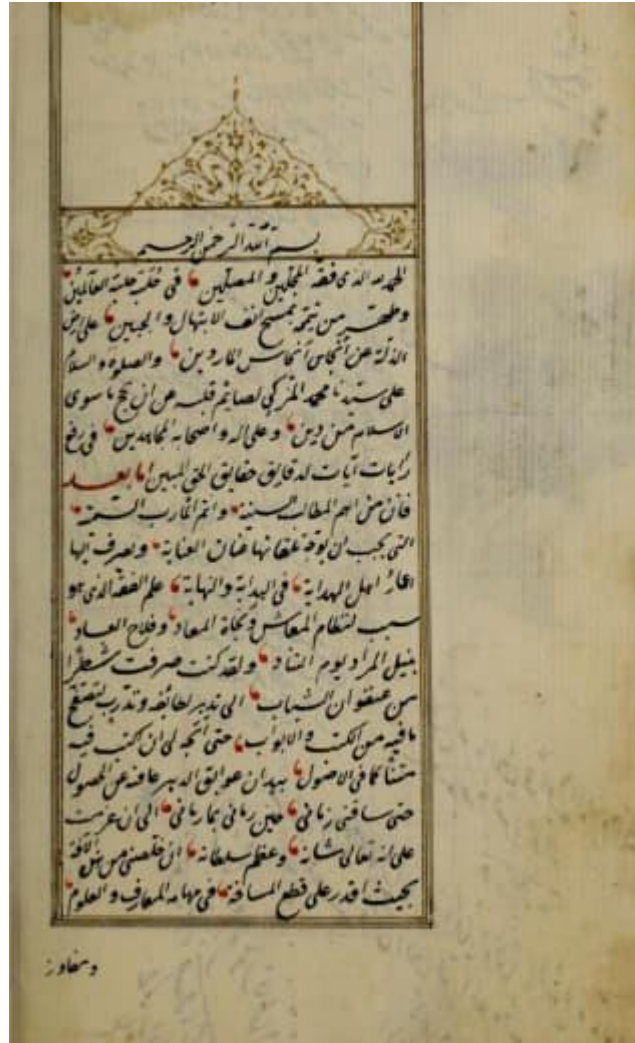 بسم الله الرحمن الرحيم
الحمد لله الذى فقه المجلين والمصلين فى حلبة العالمين
وطهر من تيمم بمسح انف الابتهال والجبين على ارض
الذلة عن أنجاس الماردين والصلوة والسلام
على سيدنا محمد المزكى لصايم قلبه عن ان يحج ما سوى
الاسلام من دين وعلى اله واصحابه المجاهدين فى رفع
رايات آيات لدقايق حقايق الحق المبين اما بعد
فان من اهم المطالب السنية واتم المارب
التى يجب ان يوجه تلقائها عنان العناية ويصرف اليها
اهل الهداية فى البداية والنهاية علم الفقه الذى هو
سبب لنظام المعاش ونجاة المعاد وفلاح العباد
بنيل المراد يوم التناد ولقد كنت صرفت شطرا
من عنفوان الشباب الى تدبر لطائفه وتدرب لتصفح
ما فيه من الكتب والابواب حتى أتجه لى ان كتب فيه
متنا فى الاصول بيد ان عوائق الدهر عاقه عن الحصول
حتى ساقنى زمانى حين رمانى بما رمانى الى ان عزمت
على الله تعالى شانه وعظم سلطانه ان خلصنى من هذه الآفة
بحيث اقدر على قطع المسافة فى مهامه المعارف والعلوم
ومفاوز